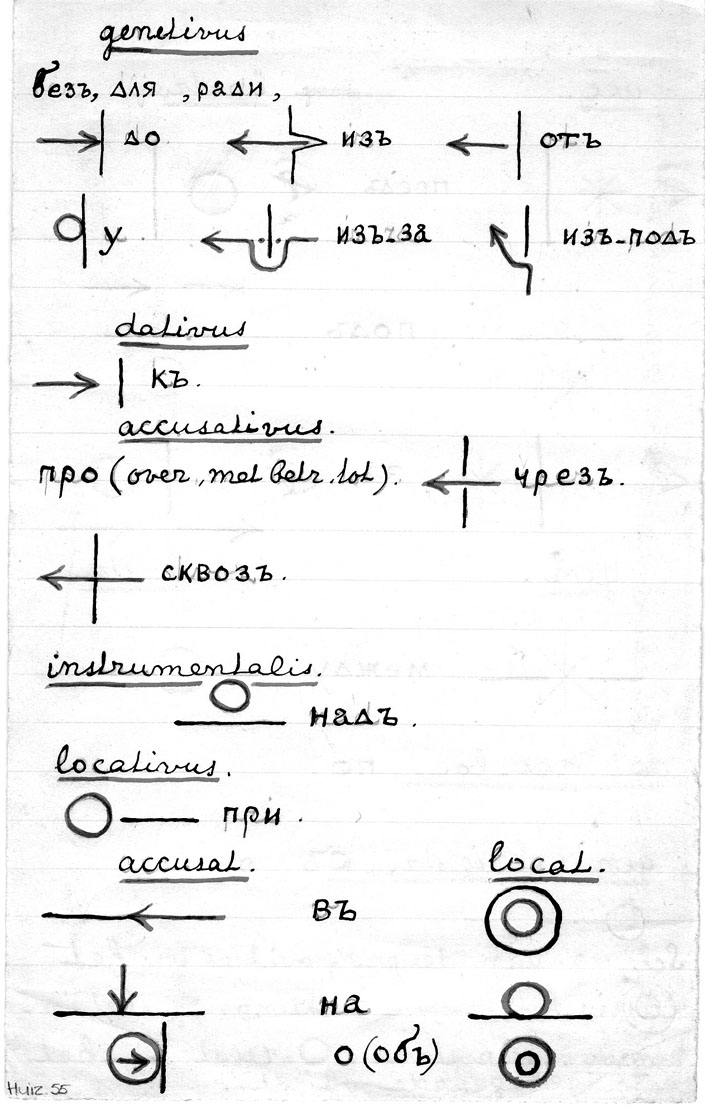 genetivus
безъ, для , ради ,
до изъ отъ
у изъ-за изъ-подъ
dativus
къ.
accusativus.
про (over, met betr. tot). чрезъ.
сквозь.
instrumentalis.
надъ.
locativus.
при .
accusat. locat.
въ
на
о (объ)
Huiz. 55